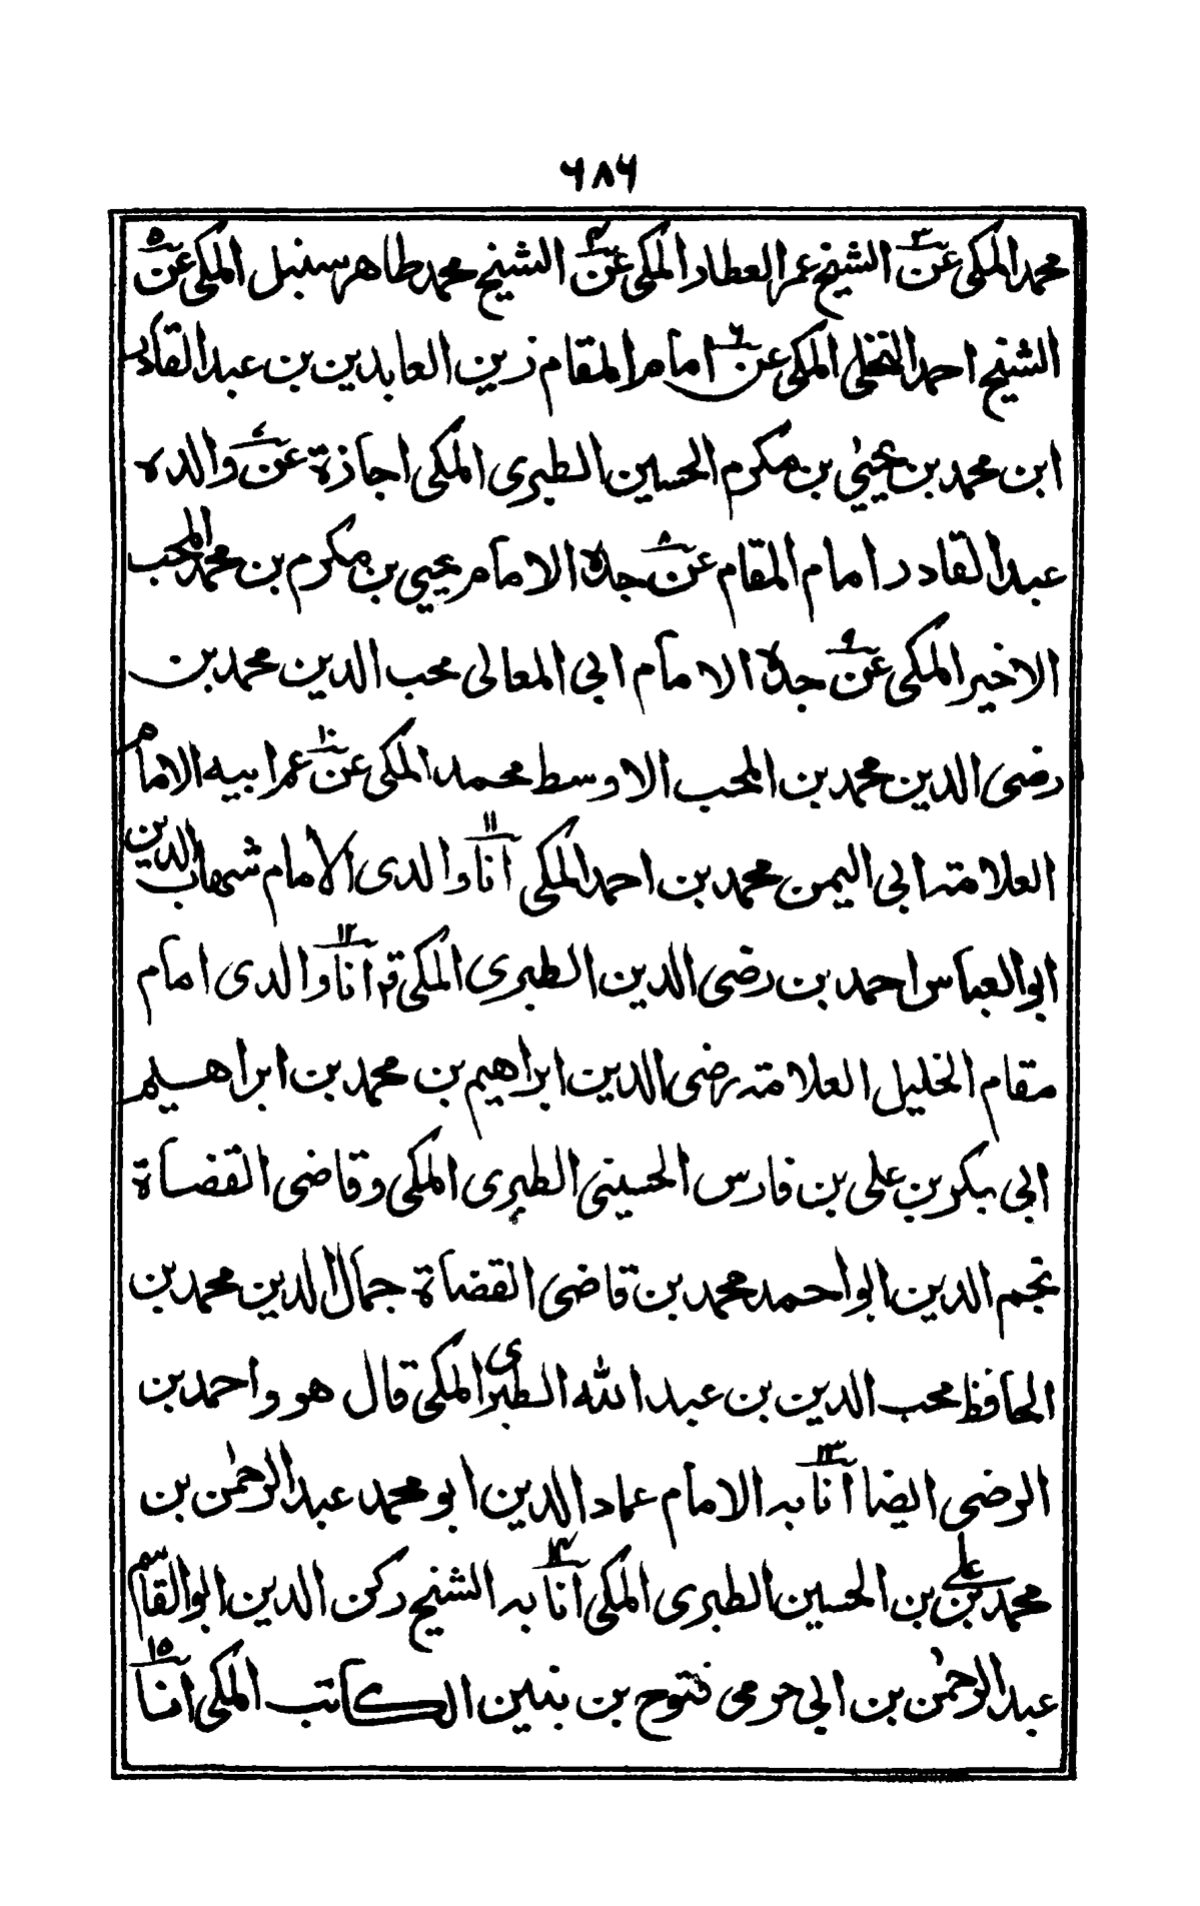 ۶۸۶
محمد المكى عن ۳ الشيخ عمر العطار المكى عن ۴ الشيخ محمد طاهر سنبل المكى عن ۵
الشيخ احمد النخلى المكى عن ۶ امام المقام زين العابدين بن عبد القادر
ابن محمد بن يحيىٰ بن مكرم الحسين الطبرى المكى اجازة عن ۷ والده
عبد القادر امام المقام عن ۸ جده الامام يحيى بن مكرم بن محمد المحب
الاخير المكى عن ۹ جده الامام ابى المعالى محب الدين محمد بن
رضى الدين محمد بن المحب الاوسط محمد المكى عن ۱۰ عم ابيه الامام
العلامة ابى اليمن محمد بن احمد المكى انا ۱۱ والدى الامام شهاب الدين
ابو العباس احمد بن رضى الدين الطبرى المكى قال انا ۱۲ والدى امام
مقام الخليل العلامة رضى الدين ابراهيم بن محمد بن ابراهيم
ابى بكر بن على بن فارس الحسينى الطبرى المكى وقاضى القضاة
نجم الدين ابو احمد محمد بن قاضى القضاة جمال الدين محمد بن
الحافظ محب الدين بن عبد الله الطبرى المكى قال هو واحمد بن
الرضى ايضا انا ۱۳ به الامام عماد الدين ابو محمد عبد الرحمٰن بن
محمد بن على بن الحسين الطبرى المكى انا ۱۴ به الشيخ ركن الدين ابو القاسم
عبد الرحمٰن بن ابى حرمى فتوح بن بنين الكاتب المكى انا ۱۵